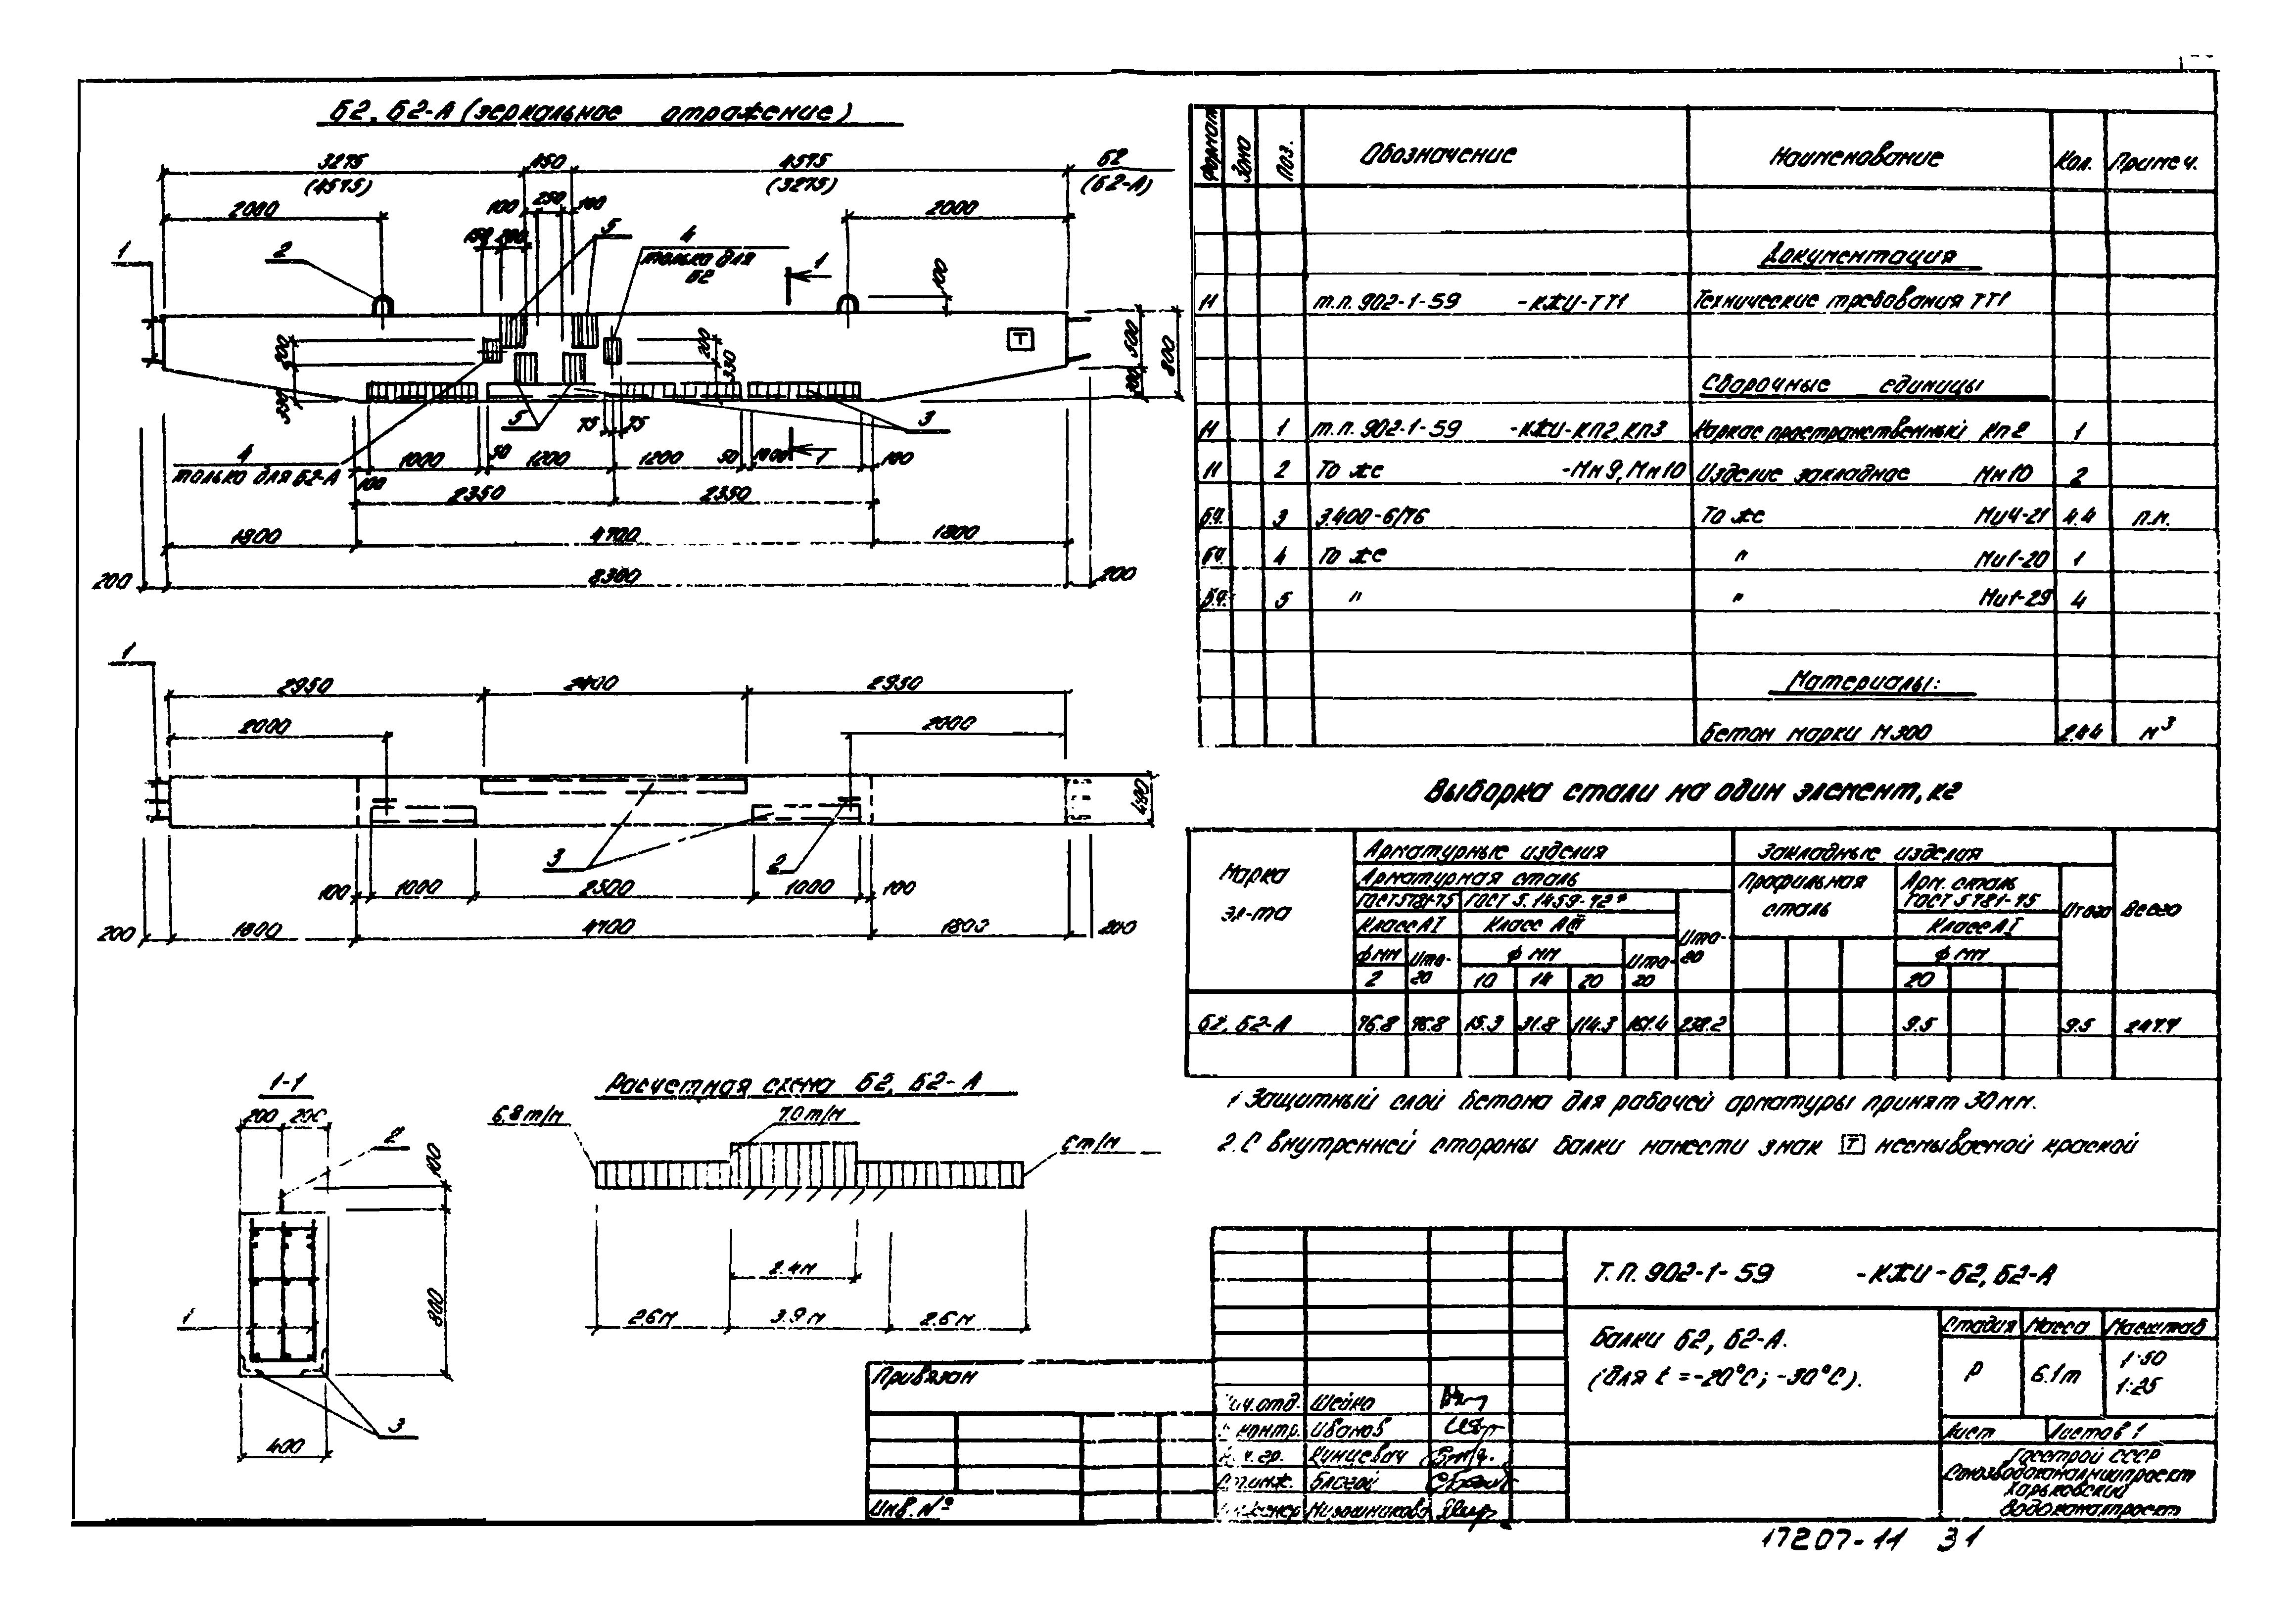 Б2, Б2-А (зеркальное отражение)
3275 450 4575 Б2
(4575) (3275) (Б2-А)
2000 100 250 100 2000
150 200 5
1 2 4 1
только для
Б2
100
200 200 500 800
330 330 300
Т
5 75 75 3
4
только для Б2-А
1000 50 1200 1200 50 1000 1 100
100
2350 2350
1800 4700 1800
200 8300 200
1
2950 2400 2950
2000 2000
400
3 2
100 1000 2500 1000 100
200 1800 4700 1800 200
1-1
200 200
2
100
800
1
3
400
Расчетная схема Б2, Б2-А
6.8 т/м 7.0 т/м ст/м
2.4 м
2.6 м 3.9 м 2.6 м
Формат Зона Поз. Обозначение Наименование Кол. Примеч.
Документация
И т.п. 902-1-59 -КЖИ-ТТ1 Технические требования ТТ1
Сварочные единицы
И 1 т.п. 902-1-59 -КЖИ-КП2, КП3 Каркас пространственный КП2 1
И 2 То же -Мн9, Мн10 Изделие закладное Мн10 2
БЧ. 3 3.400-6/76 То же Ми4-21 4.4 п.м.
БЧ. 4 То же " Ми1-20 1
БЧ. 5 " " Ми1-29 4
Материалы:
Бетон марки М300 2.44 м³
Выборка стали на один элемент, кг
Марка эл-та Арматурные изделия Закладные изделия
Арматурная сталь Профильная сталь Арм. сталь Итого Всего
ГОСТ 5781-75 ГОСТ 5.1459-72* ГОСТ 5781-75
Класс АI Класс АIII Итого Класс АI
ф мм Итого ф мм Итого ф мм
2 10 14 20 20
Б2, Б2-А 76.8 76.8 15.3 31.8 114.3 161.4 238.2 9.5 9.5 247.7
1 Защитный слой бетона для рабочей арматуры принят 30 мм.
2. С внутренней стороны балки нанести знак Т несмываемой краской
Т.П. 902-1-59 -КЖИ-Б2, Б2-А
Балки Б2, Б2-А.
(для t = -20°С; -30°С).
Стадия Масса Масштаб
Р 6.1т 1:50
1:25
Лист Листов 1
Госстрой СССР
Союзводоканалниипроект
Харьковский
Водоканалпроект
Привязан
Инв. №
Нач. отд. Шейко
контр. Иванов
Кунцевич
Инженер
17207-11 31